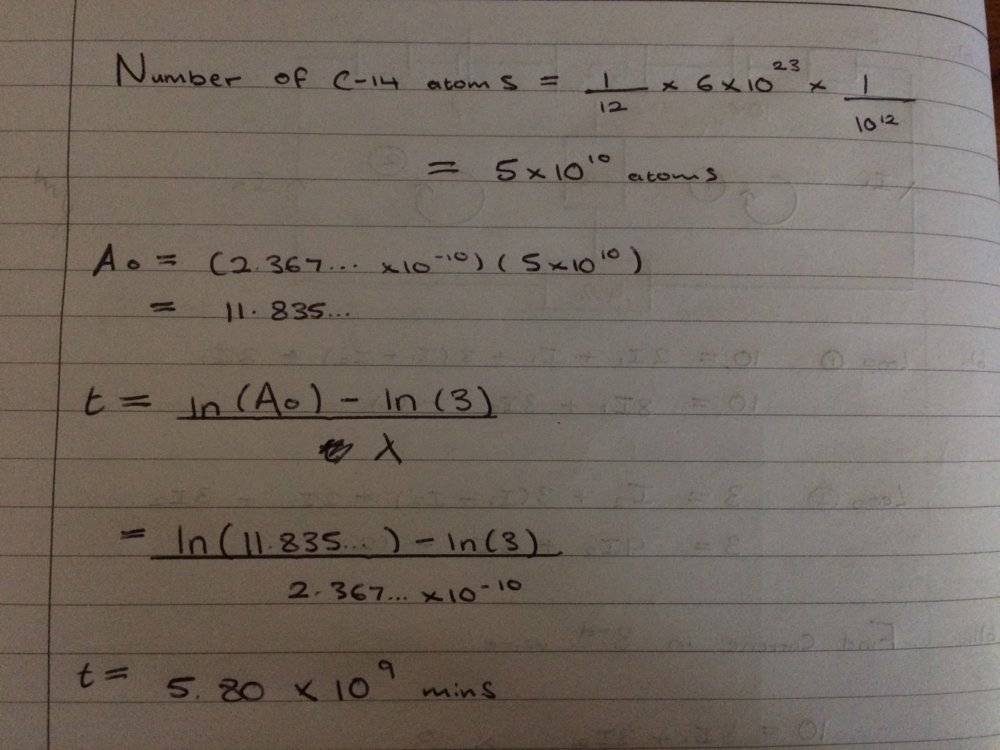 Number of C-14 atoms = 1/12 × 6×10²³ × 1/10¹²
= 5×10¹⁰ atoms
A₀ = (2.367... ×10⁻¹⁰)(5×10¹⁰)
= 11.835...
t = ln(A₀) - ln(3) / λ
= ln(11.835...) - ln(3) / 2.367... ×10⁻¹⁰
t = 5.80 × 10⁹ mins